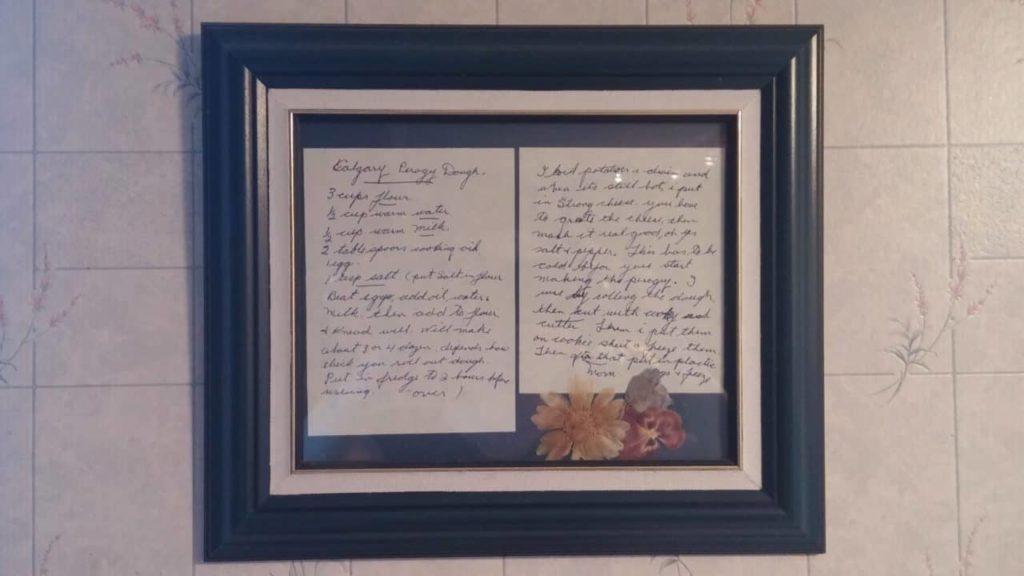 Calgary Perogy Dough.
3 cups flour
½ cup warm water
½ cup warm milk.
2 tablespoons cooking oil
egg.
1 tsp salt (put salt in flour
Beat eggs, add oil, water,
milk then add to flour
& knead well. Will make
about 3 or 4 dozen, depends how
thick you roll out dough.
Put in fredge to 2 hours before
using. over)
I boil potatoes & drain and
when its still hot i put
in strong cheese you have
to grate the cheese, then
mash it real good, oh yes
salt & pepper. This has to be
cold before you start
making the perogy. I
use rolling the dough
then cut with cooky
cutter Then i put them
on cookie sheet & freeze them
Then after that put in plastic
Mom bags & freeze